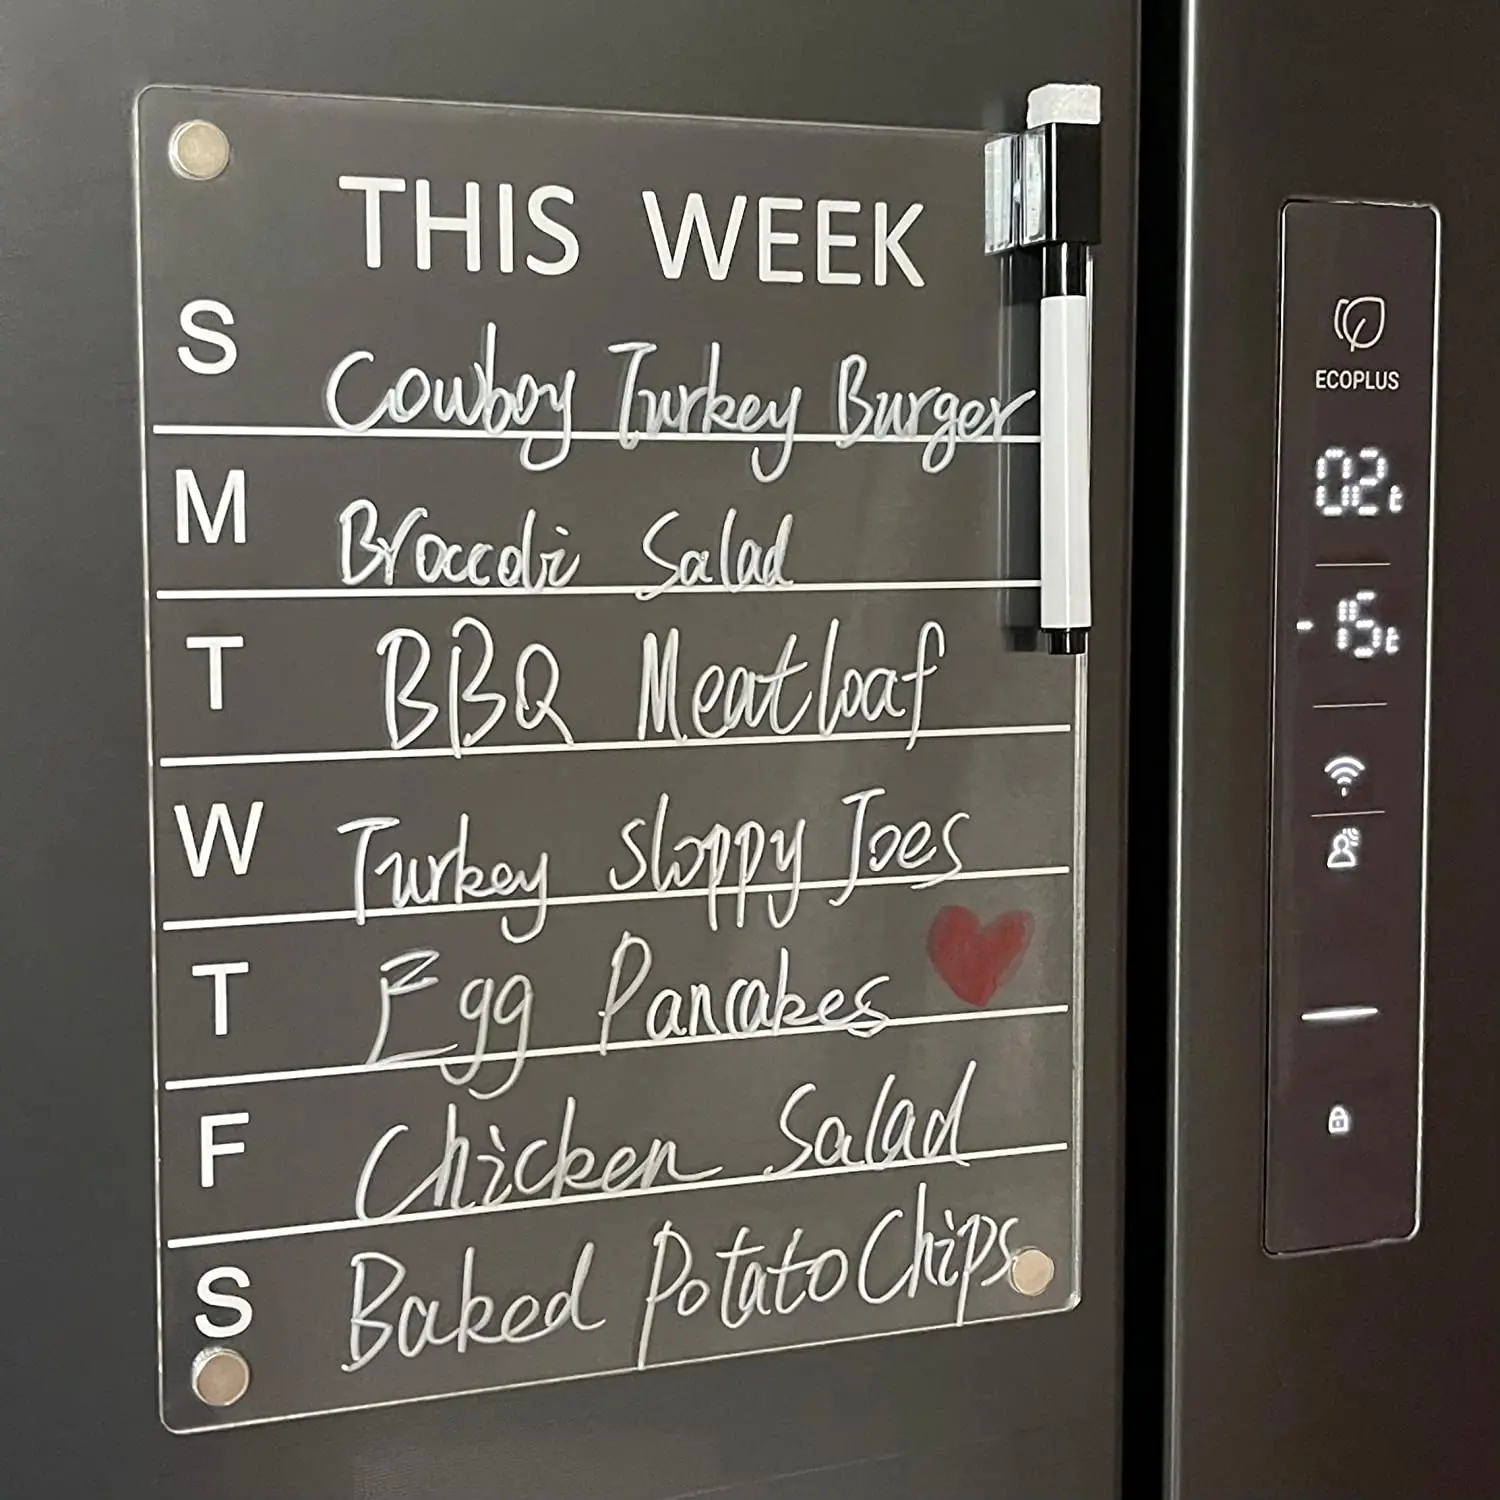 THIS WEEK
S
Cowboy Turkey Burger
M
Broccoli Salad
T
BBQ Meatloaf
W
Turkey Sloppy Joes
T
Egg Pancakes
F
Chicken Salad
S
Baked Potato Chips
ECOPLUS
02
-15